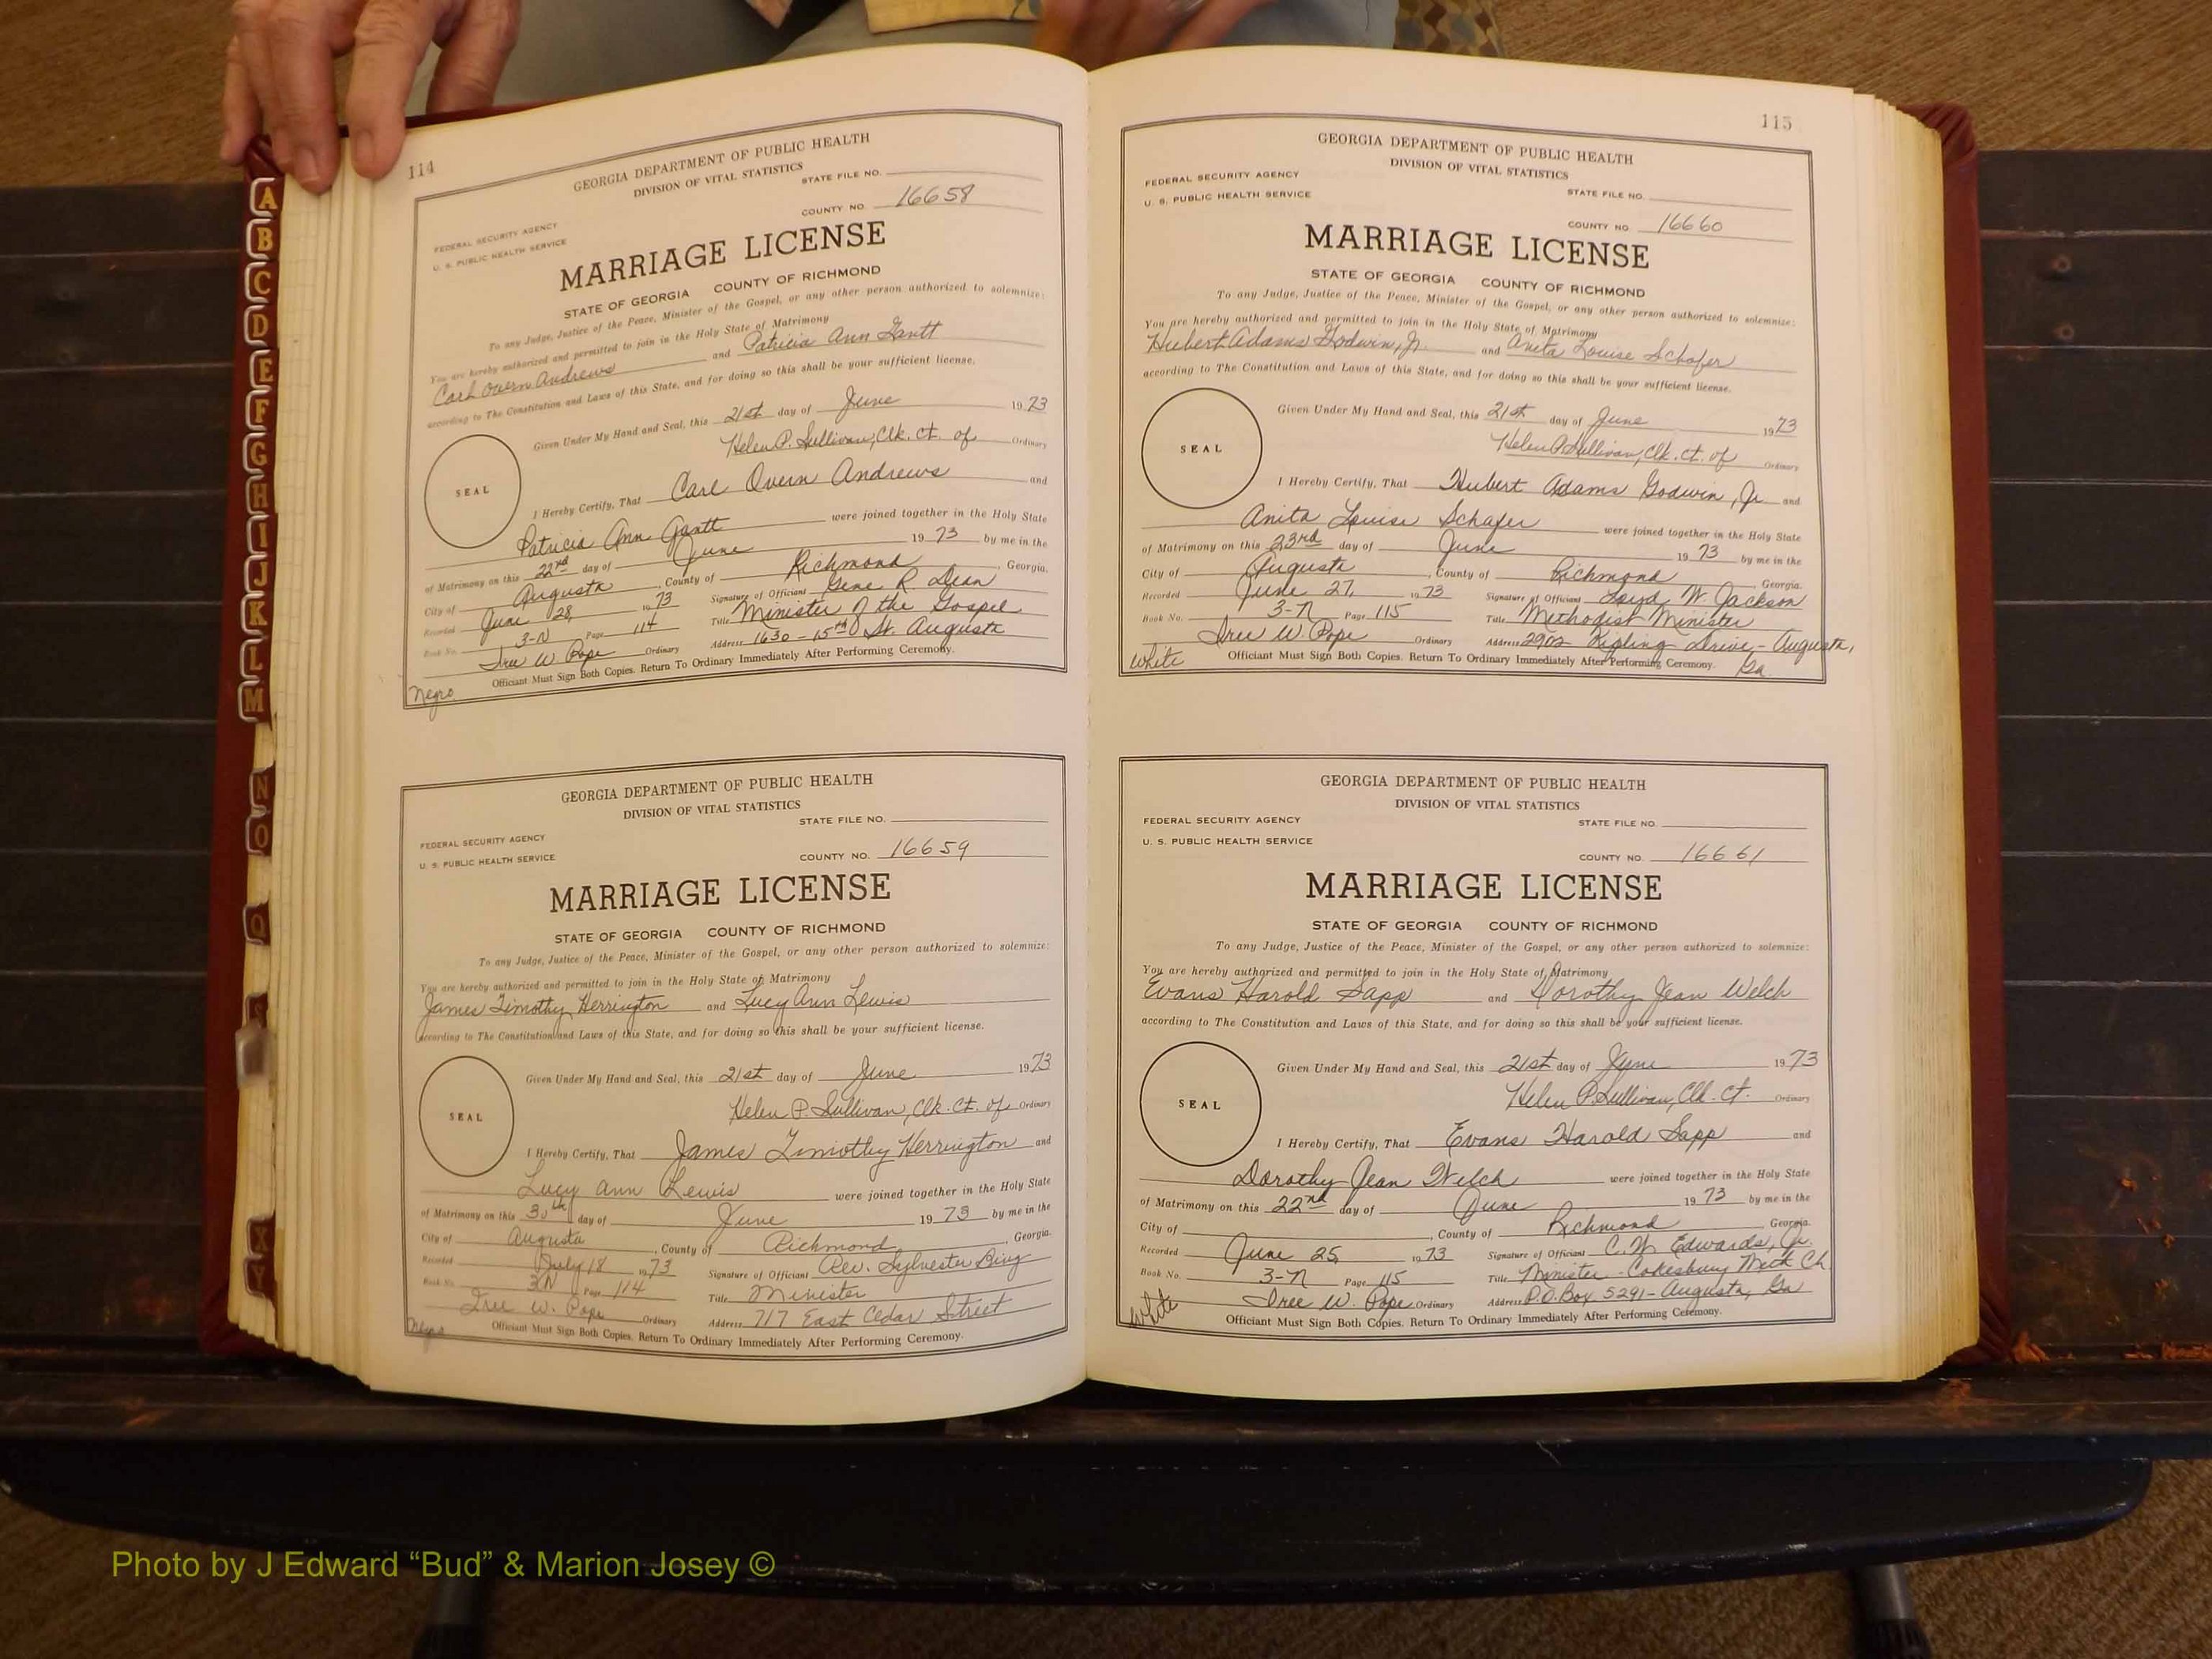 114
GEORGIA DEPARTMENT OF PUBLIC HEALTH
DIVISION OF VITAL STATISTICS
STATE FILE NO.
COUNTY NO. 16658
FEDERAL SECURITY AGENCY
U. S. PUBLIC HEALTH SERVICE
MARRIAGE LICENSE
STATE OF GEORGIA COUNTY OF RICHMOND
To any Judge, Justice of the Peace, Minister of the Gospel, or any other person authorized to solemnize:
You are hereby authorized and permitted to join in the Holy State of Matrimony
Carl Overn Andrews and Patricia Ann Gantt
according to The Constitution and Laws of this State, and for doing so this shall be your sufficient license.
Given Under My Hand and Seal, this 21st day of June 1973
Helen P. Sullivan, Clk. Ct. of Ordinary
SEAL
I Hereby Certify, That Carl Overn Andrews and
Patricia Ann Gantt were joined together in the Holy State
of Matrimony on this 22nd day of June 1973 by me in the
City of Augusta, County of Richmond, Georgia.
Recorded June 28, 1973 Signature of Officiant Gene R. Dean
Book No. 3-N Page 114 Title Minister of the Gospel
Iree W. Pope Ordinary Address 1630 - 15th St. Augusta
Officiant Must Sign Both Copies. Return To Ordinary Immediately After Performing Ceremony.
Negro
GEORGIA DEPARTMENT OF PUBLIC HEALTH
DIVISION OF VITAL STATISTICS
STATE FILE NO.
FEDERAL SECURITY AGENCY
U. S. PUBLIC HEALTH SERVICE
COUNTY NO. 16659
MARRIAGE LICENSE
STATE OF GEORGIA COUNTY OF RICHMOND
To any Judge, Justice of the Peace, Minister of the Gospel, or any other person authorized to solemnize:
You are hereby authorized and permitted to join in the Holy State of Matrimony
James Timothy Herrington and Lucy Ann Lewis
according to The Constitution and Laws of this State, and for doing so this shall be your sufficient license.
Given Under My Hand and Seal, this 21st day of June 1973
Helen P. Sullivan, Clk. Ct. of Ordinary
SEAL
I Hereby Certify, That James Timothy Herrington and
Lucy Ann Lewis were joined together in the Holy State
of Matrimony on this 30th day of June 1973 by me in the
City of Augusta, County of Richmond, Georgia.
Recorded July 18 1973 Signature of Officiant Rev. Sylvester Bing
Book No. 3N Page 114 Title Minister
Iree W. Pope Ordinary Address 717 East Cedar Street
Officiant Must Sign Both Copies. Return To Ordinary Immediately After Performing Ceremony.
Negro
115
GEORGIA DEPARTMENT OF PUBLIC HEALTH
DIVISION OF VITAL STATISTICS
FEDERAL SECURITY AGENCY
U. S. PUBLIC HEALTH SERVICE
STATE FILE NO.
COUNTY NO. 16660
MARRIAGE LICENSE
STATE OF GEORGIA COUNTY OF RICHMOND
To any Judge, Justice of the Peace, Minister of the Gospel, or any other person authorized to solemnize:
You are hereby authorized and permitted to join in the Holy State of Matrimony
Hubert Adams Godwin, Jr. and Anita Louise Schafer
according to The Constitution and Laws of this State, and for doing so this shall be your sufficient license.
Given Under My Hand and Seal, this 21st day of June 1973
Helen P. Sullivan, Clk. Ct. of Ordinary
SEAL
I Hereby Certify, That Hubert Adams Godwin, Jr. and
Anita Louise Schafer were joined together in the Holy State
of Matrimony on this 23rd day of June 1973 by me in the
City of Augusta, County of Richmond, Georgia.
Recorded June 27, 1973 Signature of Officiant Loyd W. Jackson
Book No. 3-N Page 115 Title Methodist Minister
Iree W. Pope Ordinary Address 2902 Kipling Drive - Augusta,
Ga.
White Officiant Must Sign Both Copies. Return To Ordinary Immediately After Performing Ceremony.
GEORGIA DEPARTMENT OF PUBLIC HEALTH
DIVISION OF VITAL STATISTICS
FEDERAL SECURITY AGENCY
U. S. PUBLIC HEALTH SERVICE
STATE FILE NO.
COUNTY NO. 16661
MARRIAGE LICENSE
STATE OF GEORGIA COUNTY OF RICHMOND
To any Judge, Justice of the Peace, Minister of the Gospel, or any other person authorized to solemnize:
You are hereby authorized and permitted to join in the Holy State of Matrimony
Evans Harold Sapp and Dorothy Jean Welch
according to The Constitution and Laws of this State, and for doing so this shall be your sufficient license.
Given Under My Hand and Seal, this 21st day of June 1973
Helen P. Sullivan, Clk. Ct. Ordinary
SEAL
I Hereby Certify, That Evans Harold Sapp and
Dorothy Jean Welch were joined together in the Holy State
of Matrimony on this 22nd day of June 1973 by me in the
City of , County of Richmond, Georgia.
Recorded June 25, 1973 Signature of Officiant C. W. Edwards, Jr.
Book No. 3-N Page 115 Title Minister - Cokesbury Meth Ch.
Iree W. Pope Ordinary Address P.O. Box 5291 - Augusta, Ga
White Officiant Must Sign Both Copies. Return To Ordinary Immediately After Performing Ceremony.
A
B
C
D
E
F
G
H
I
J
K
L
M
N
O
Q
S
X
Y
Photo by J Edward “Bud” & Marion Josey ©